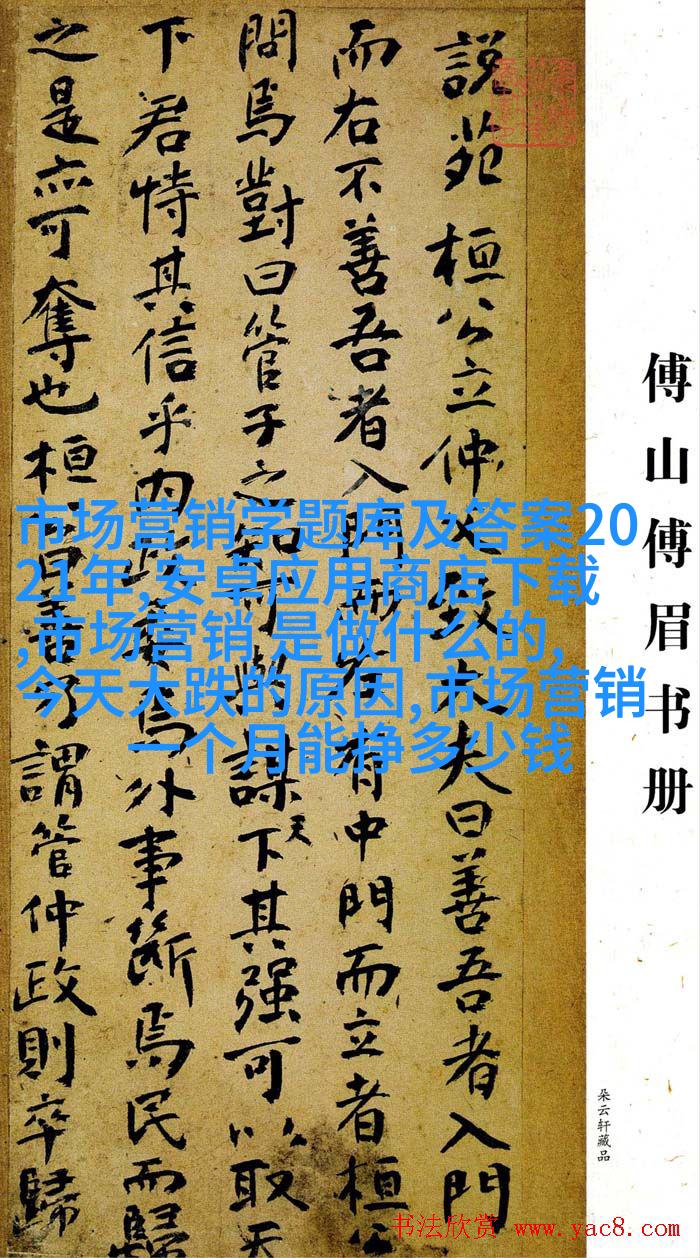 說苑 桓公立仲父致大夫曰善吾者入門
而右不善吾者入門而左有中門而立者桓公
問焉對曰管子之知可與謀天下其强可以取天
下君恃其信乎内政委焉外事斷焉民而歸
之是亦可奪也桓公曰善乃謂管仲政則卒歸
市场营销学题库及答案20
21年,安卓应用商店下载
,市场营销 是做什么的,
今天大跌的原因,市场营销
一个月能挣多少钱
傅山傅眉书册
朵云轩藏品
书法欣赏 www.yac8.com